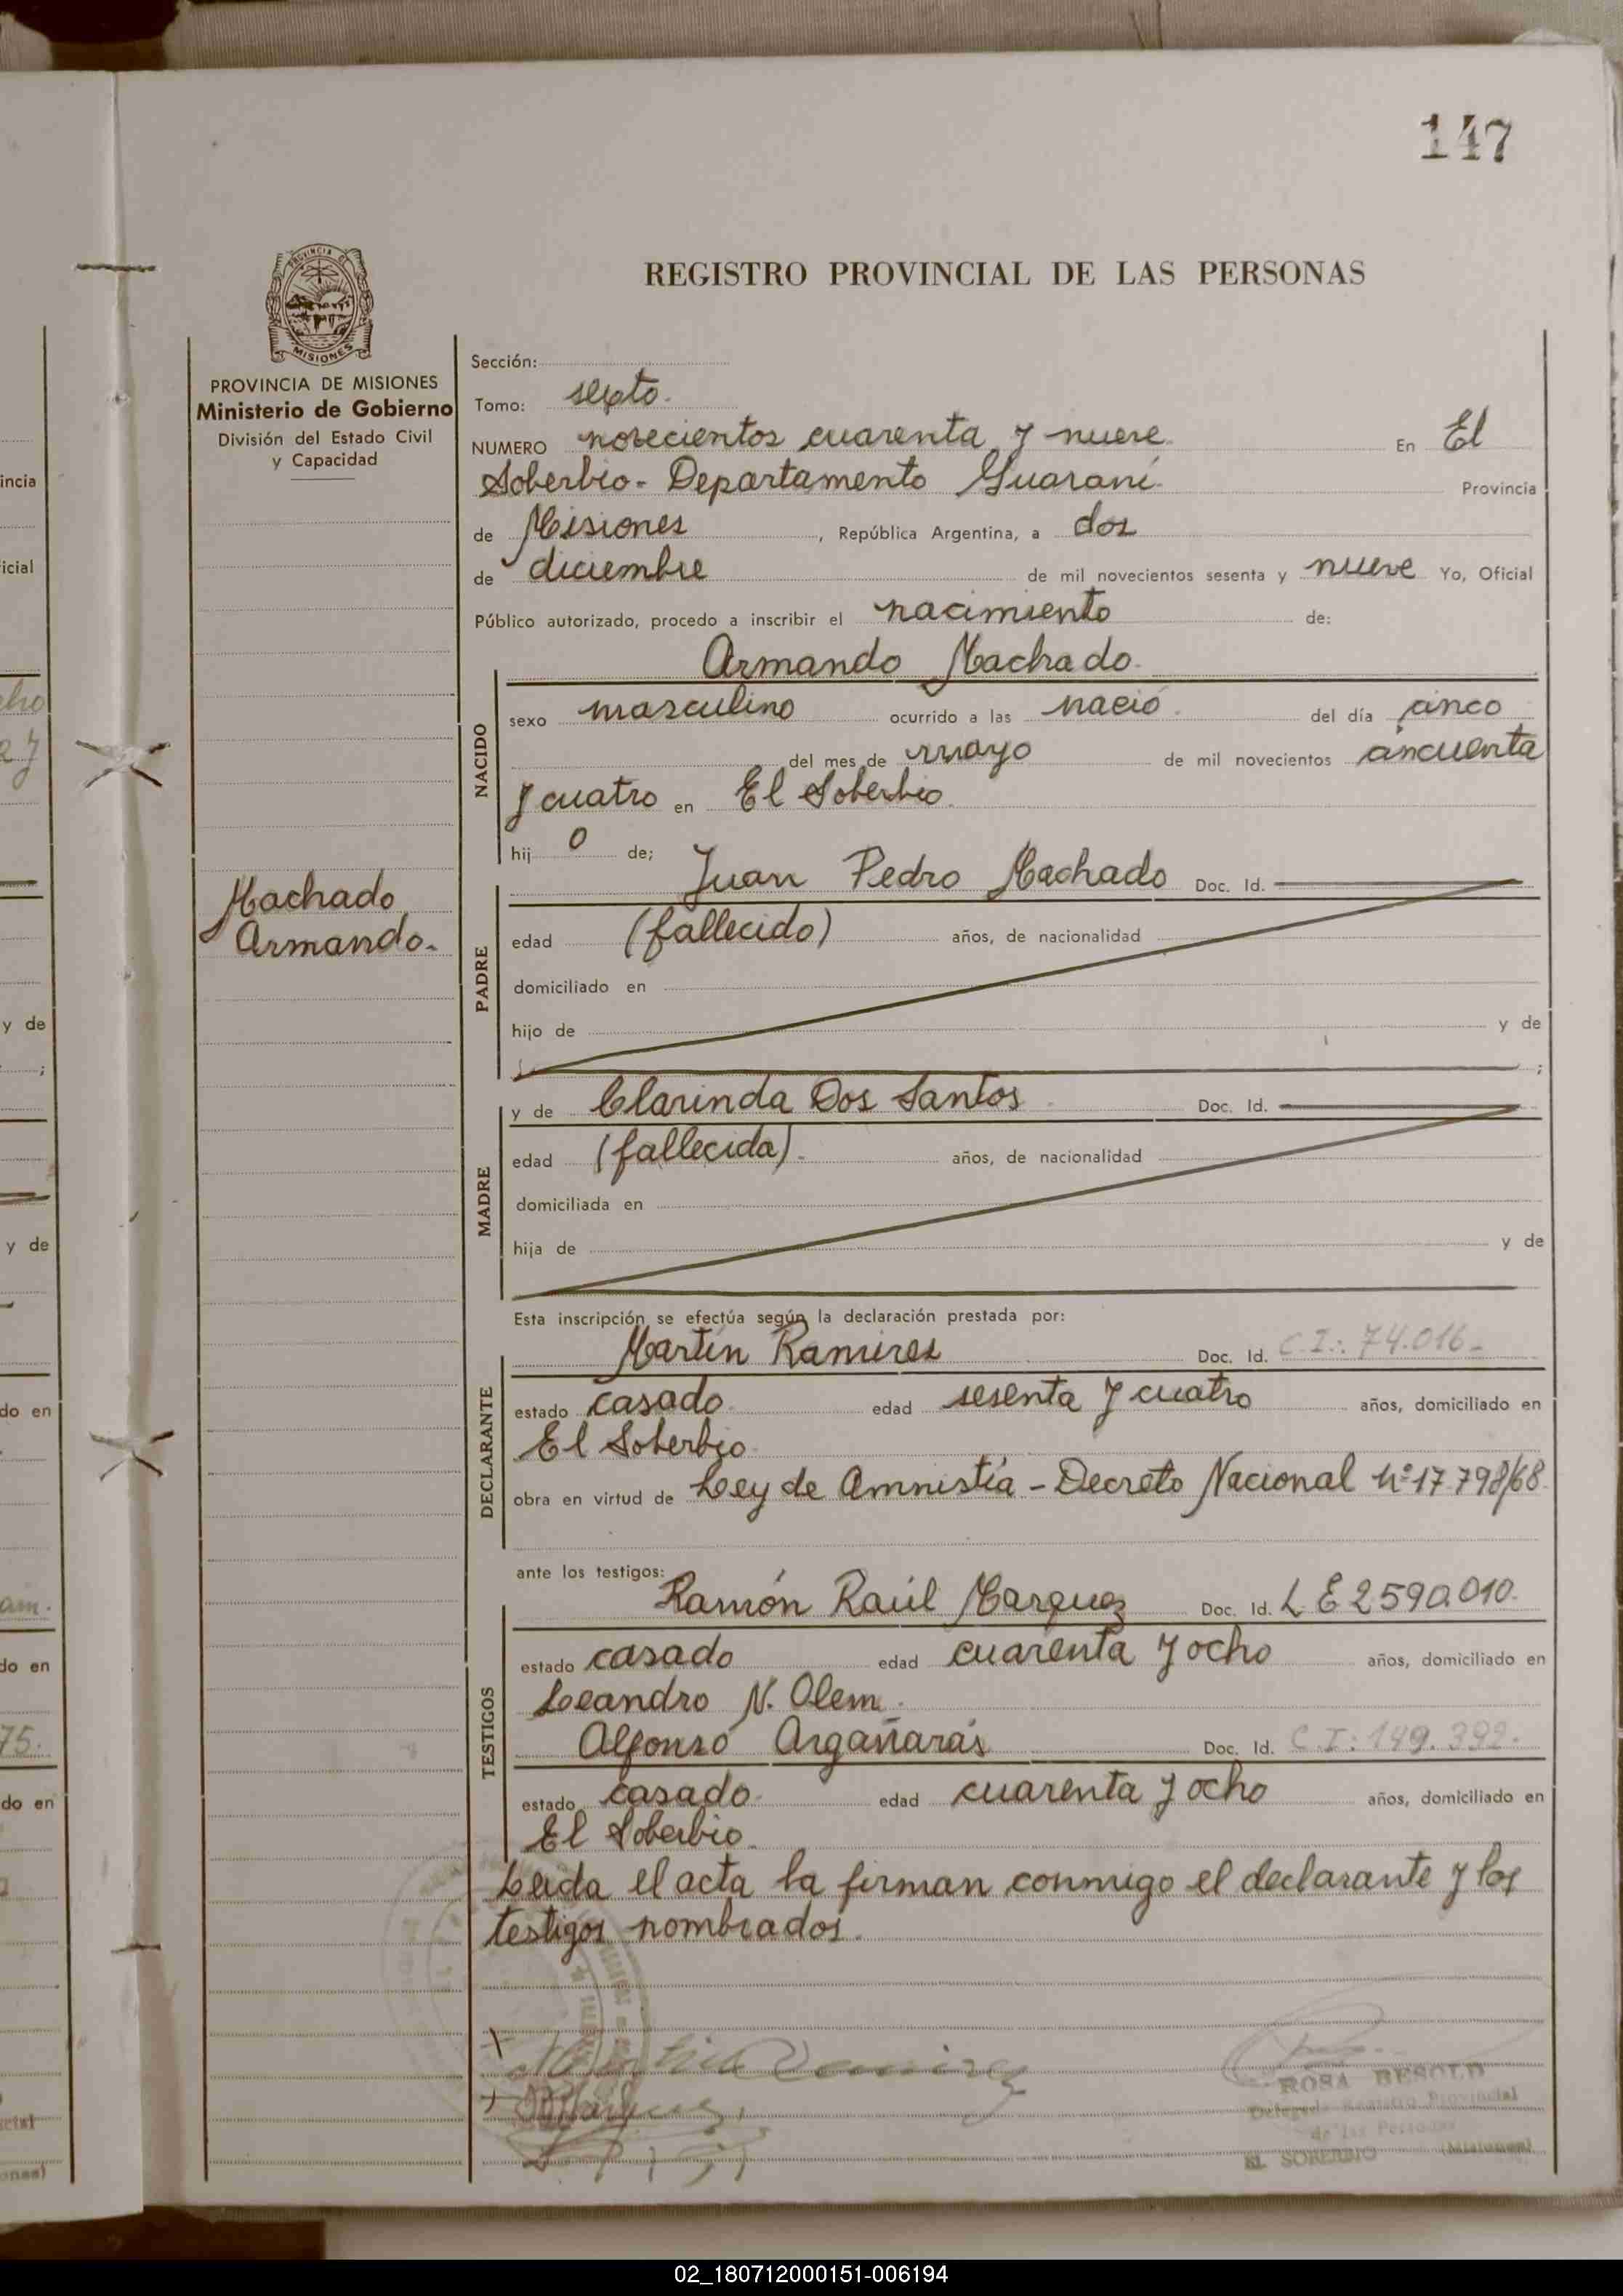 147
PROVINCIA DE
MISIONES
REGISTRO PROVINCIAL DE LAS PERSONAS
PROVINCIA DE MISIONES
Ministerio de Gobierno
División del Estado Civil
y Capacidad
Sección:
Tomo: sexto.
NUMERO novecientos cuarenta y nueve. En El
Soberbio - Departamento Guaraní. Provincia
de Misiones, República Argentina, a dos
de diciembre de mil novecientos sesenta y nueve Yo, Oficial
Público autorizado, procedo a inscribir el nacimiento de:
Armando Machado.
NACIDO
sexo masculino ocurrido a las nació. del día cinco
del mes de mayo de mil novecientos cincuenta
y cuatro en El Soberbio.
hij o de;
Machado
Armando.
PADRE
Juan Pedro Machado Doc. Id.
edad (fallecido) años, de nacionalidad
domiciliado en
hijo de y de
;
MADRE
y de Clarinda Dos Santos Doc. Id.
edad (fallecida). años, de nacionalidad
domiciliada en
hija de y de
Esta inscripción se efectúa según la declaración prestada por:
DECLARANTE
Martín Ramirez Doc. Id. C.I.: 74.016-
estado casado. edad sesenta y cuatro años, domiciliado en
El Soberbio.
obra en virtud de Ley de Amnistía - Decreto Nacional Nº 17.798/68.
ante los testigos:
TESTIGOS
Ramón Raúl Marquez Doc. Id. L E 2590.010.
estado casado edad cuarenta y ocho años, domiciliado en
Leandro N. Alem.
Alfonso Argañarás Doc. Id. C.I: 149.392.
estado casado. edad cuarenta y ocho años, domiciliado en
El Soberbio.
Leida el acta la firman conmigo el declarante y los
testigos nombrados.
ROSA BESOLD
Delegada Registro Provincial
de las Personas
EL SOBERBIO (Misiones)
incia
icial
cho
y de
;
y de
do en
am.
do en
75.
do en
02_180712000151-006194